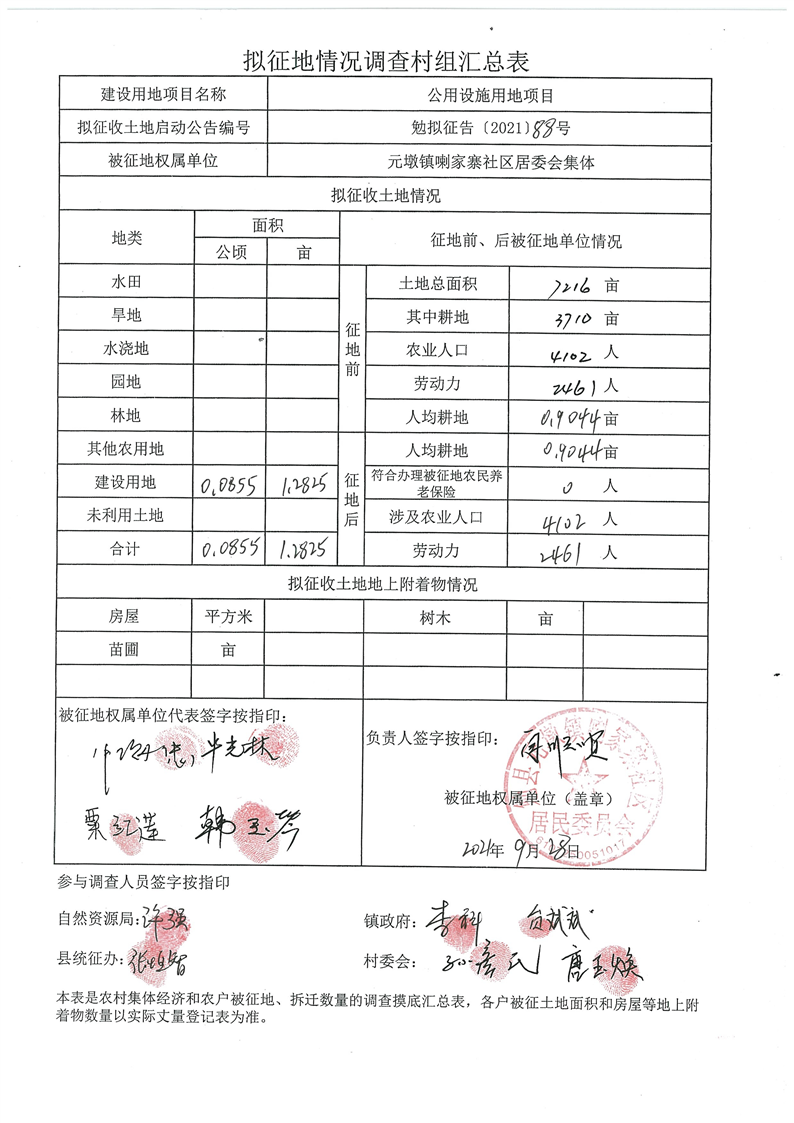 拟征地情况调查村组汇总表
建设用地项目名称 公用设施用地项目
拟征收土地启动公告编号 勉拟征告〔2021〕88号
被征地权属单位 元墩镇喇家寨社区居委会集体
拟征收土地情况
地类 面积 征地前、后被征地单位情况
公顷 亩
水田 征地前 土地总面积 7216 亩
旱地 其中耕地 3710 亩
水浇地 农业人口 4102 人
园地 劳动力 2461 人
林地 人均耕地 0.9044 亩
其他农用地 征地后 人均耕地 0.9044 亩
建设用地 0.0855 1.2825 符合办理被征地农民养老保险 0 人
未利用土地 涉及农业人口 4102 人
合计 0.0855 1.2825 劳动力 2461 人
拟征收土地地上附着物情况
房屋 平方米 树木 亩
苗圃 亩
被征地权属单位代表签字按指印：
负责人签字按指印：
韩玉琴
被征地权属单位（盖章）
居民委员会
2021年9月28日
参与调查人员签字按指印
自然资源局：许强 镇政府：李科
县统征办： 村委会：唐玉焕
本表是农村集体经济和农户被征地、拆迁数量的调查摸底汇总表，各户被征土地面积和房屋等地上附
着物数量以实际丈量登记表为准。